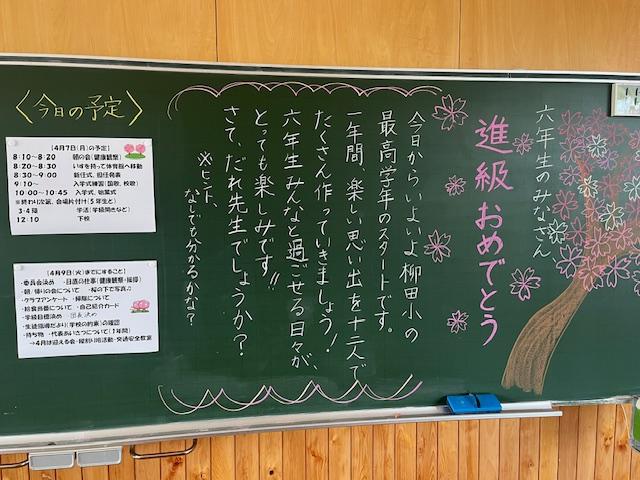 六年生のみなさん
進級おめでとう
今日からいよいよ柳田小の
最高学年のスタートです。
一年間、楽しい思い出を十二人で
たくさん作っていきましょう!
六年生みんなと過ごせる日々が、
とっても楽しみです!!
さて、だれ先生でしょうか?
※ヒント、
なしでも分かるかな?
〈今日の予定〉
(4月7日(月)の予定)
8:10~8:20 朝の会(健康観察)
8:20~8:30 いすを持って体育館へ移動
8:30~9:00 新任式、担任発表
9:10~ 入学式練習(国歌、校歌)
10:00~10:45 入学式、始業式
※終わり次第、会場片付け(5年生と)
3・4限 学活(学級開きなど)
12:10 下校
(4月9日(火)までにすること)
・委員会決め ・日直の仕事(健康観察・挨拶)
・朝/帰りの会について ・桜の下で写真♫
・クラブアンケート ・掃除について
・給食当番について ・自己紹介カード
・学級目標決め 団長決め
・生徒指導だより(学校の約束)の確認
・持ち物 ・代表あいさつについて(1年間)
→4月は迎える会・縦割り班活動・交通安全教室